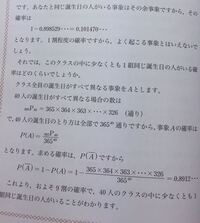 です。あなたと同じ誕生日の人がいる事象はその余事象ですから、その確率は
1－0.898529…＝0.101470…
となります。1割程度の確率ですから、よく起こる事象とはいえないでしょう。
それでは、このクラスの中に少なくとも1組同じ誕生日の人がいる確率はどのくらいでしょうか。
クラス全員の誕生日がすべて異なる事象をAとします。
40人の誕生日がすべて異なる場合の数は
＝365×364×363×…×326 （通り）
で、40人の誕生日のとり方は全部で 通りですから、事象Aの確率は
P(A)＝
となります。求める確率は、P(A̅)ですから
P(A̅)＝1－P(A)＝1－365×364×363×…×326/365 ＝0.8912…
これより、およそ9割の確率で、40人のクラスの中に少なくとも1組同じ誕生日の人がいることがわかります。